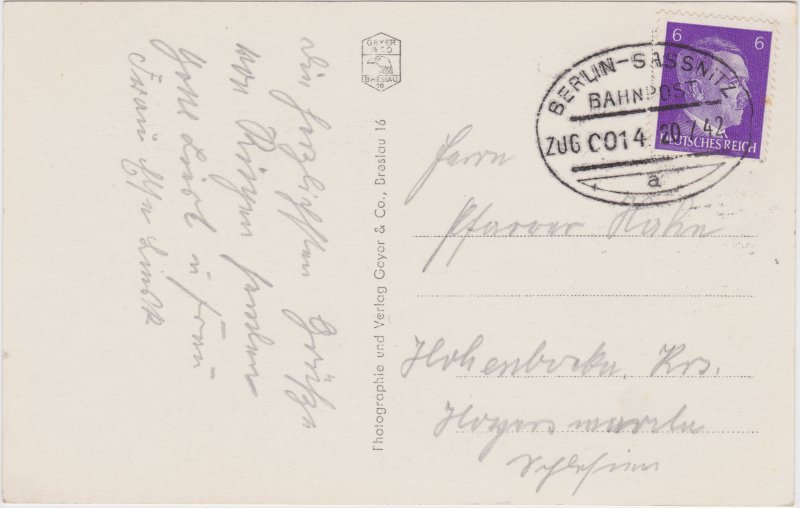 Die herzlichsten Grüße
von Rügen senden
u. Frau
Frau
GEYER
& CO
BRESLAU
16
Photographie und Verlag Geyer & Co., Breslau 16
BERLIN-SASSNITZ
BAHNPOST
ZUG 0014 20 7 42
a
6 6
DEUTSCHES REICH
Herrn
Pfarrer Hahn
Hohenbocka, Krs.
Hoyerswerda
Schlesien